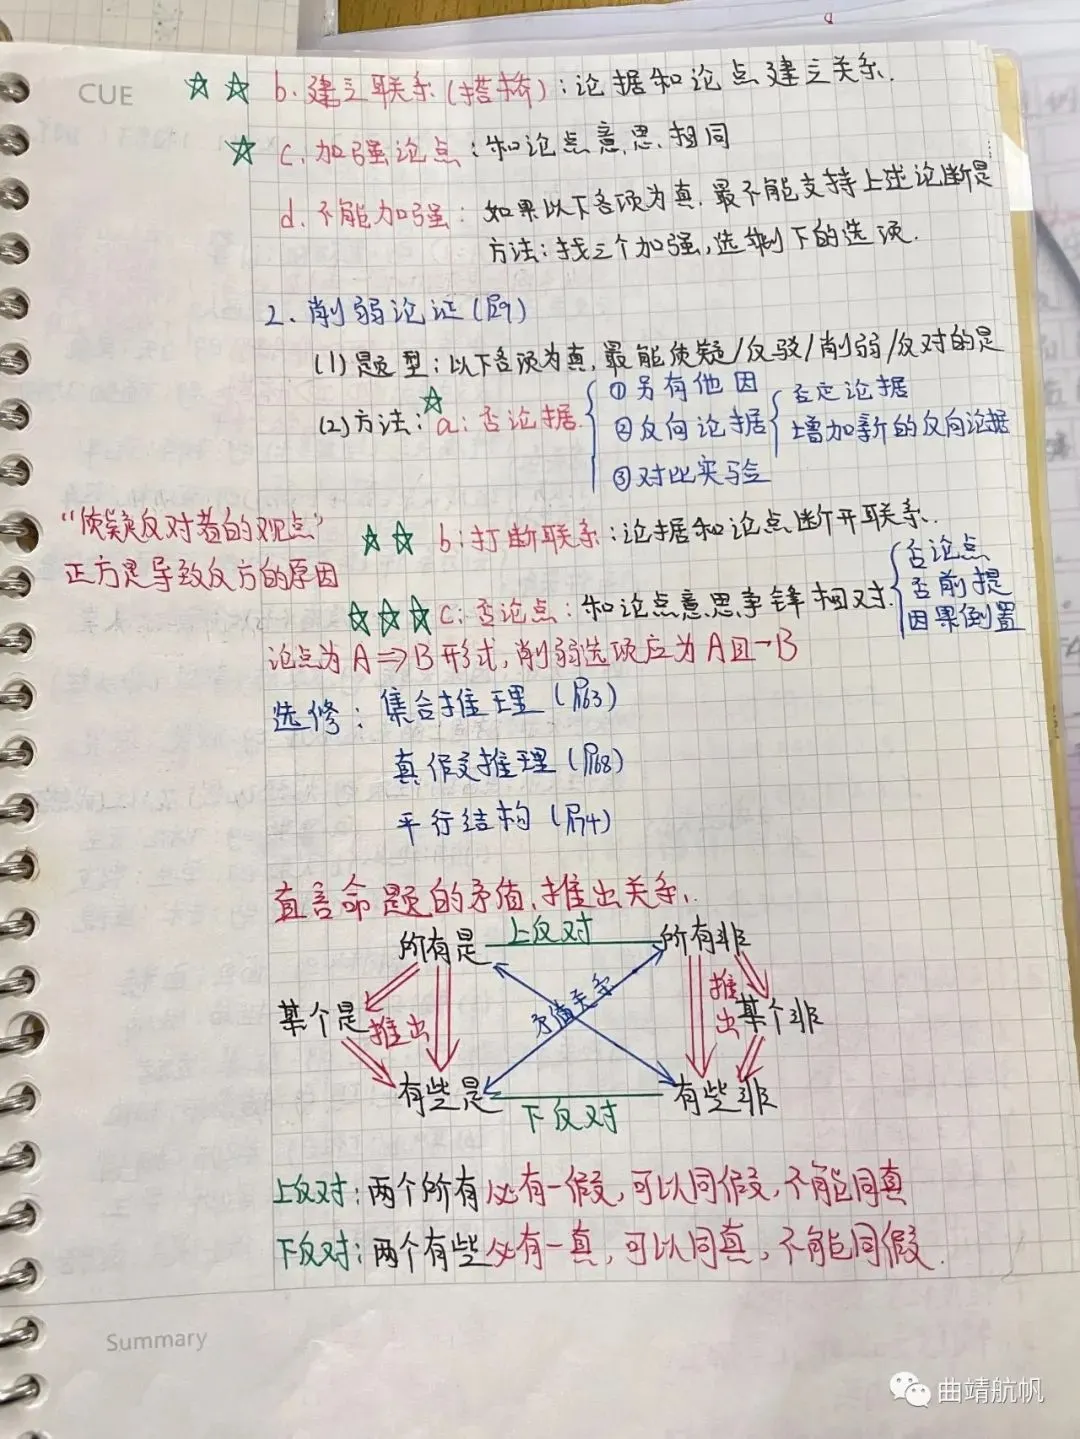 CUE
☆☆ b.建立联系(搭桥):论据和论点建立关系.
☆ c.加强论点:和论点意思相同
d.不能加强:如果以下各项为真.最不能支持上述论断是
方法:找三个加强,选剩下的选项.
2.削弱论证(P19)
(1)题型:以下各项为真,最能质疑/反驳/削弱/反对的是
(2)方法:☆a:否论据
①另有他因
②反向论据
否定论据
增加新的反向论据
③对比实验
"质疑反对着的观点"
正方是导致反方的原因
☆☆ b:打断联系:论据和论点断开联系.
☆☆☆ c:否论点:和论点意思争锋相对.
否论点
否前提
因果倒置
论点为A⇒B形式,削弱选项应为A且¬B
选修:集合推理(P63)
真假推理(P68)
平行结构(P74)
直言命题的矛盾,推出关系.
所有是 上反对 所有非
矛盾关系
某个是 推出 推出 某个非
有些是 下反对 有些非
上反对:两个所有必有一假,可以同假,不能同真
下反对:两个有些必有一真,可以同真,不能同假.
Summary
曲靖航帆